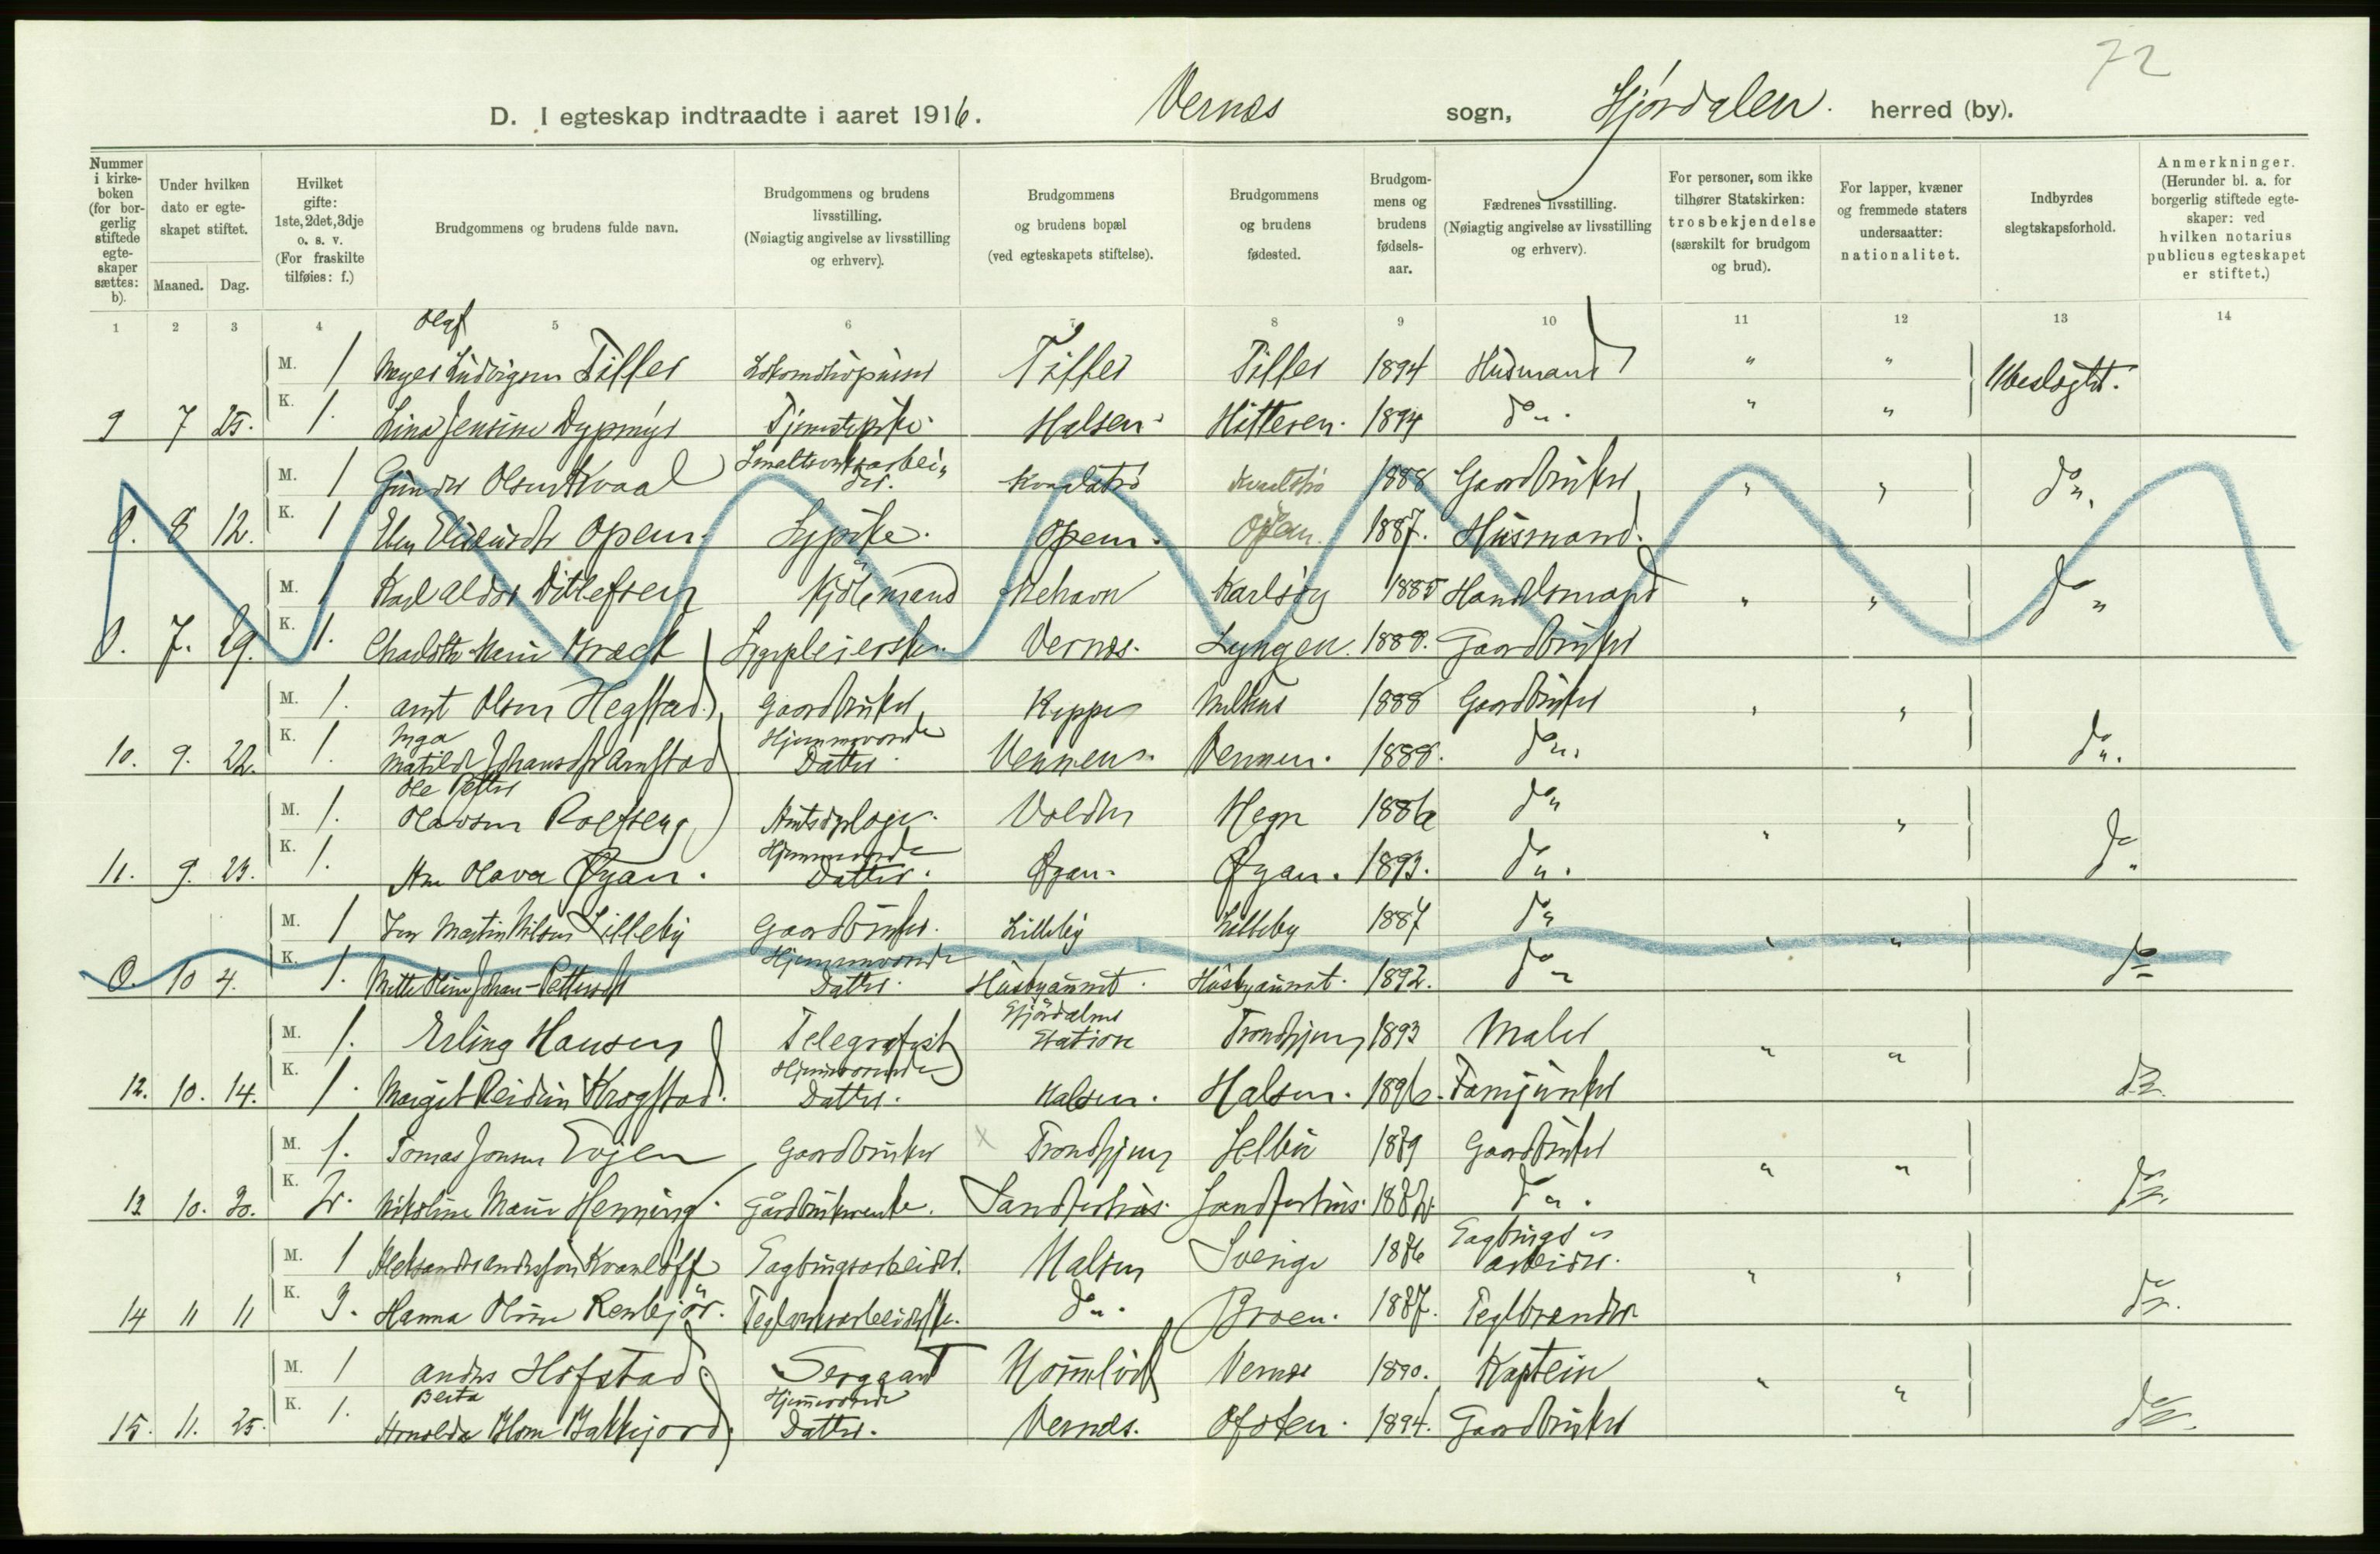 72
D. I egteskap indtraadte i aaret 1916. Vernes sogn, Stjördalen. herred (by).
Nummer i kirke-boken (for bor-gerlig stiftede egte-skaper sættes: b).
Under hvilken dato er egte-skapet stiftet.
Maaned. Dag.
Hvilket gifte: 1ste, 2det, 3dje o. s. v. (For fraskilte tilføies: f.)
Brudgommens og brudens fulde navn.
Brudgommens og brudens livsstilling. (Nøiagtig angivelse av livsstilling og erhverv).
Brudgommens og brudens bopæl (ved egteskapets stiftelse).
Brudgommens og brudens fødested.
Brudgom-mens og brudens fødsels-aar.
Fædrenes livsstilling. (Nøiagtig angivelse av livsstilling og erhverv).
For personer, som ikke tilhører Statskirken: trosbekjendelse (særskilt for brudgom og brud).
For lapper, kvæner og fremmede staters undersaatter: nationalitet.
Indbyrdes slegtskapsforhold.
Anmerkninger. (Herunder bl. a. for borgerlig stiftede egte-skaper: ved hvilken notarius publicus egteskapet er stiftet.)
1 2 3 4 5 6 7 8 9 10 11 12 13 14
Olaf
M. 1 Meyer Ludvigsen Tiller Lokomotivpusser Tiller Tiller 1894 Husmand " " Ubeslegtet.
9 7 25. K. 1. Lina Jensine Dypmyr Tjenestepike. Halsen. Hitteren. 1894 do. " "
Smelteverksarbei-
M. 1 Gunder Olsen Kvaal der. 1888 Gaardbruker " " do.
0. 8 12. K. 1 Opem. Sypike. Opem. 1887. Husmand.
M. 1 Karl Aldor Ditlefsen Mehavn Karlsöy 1885 Handelsmand " " do
0. 7. 29. K. 1. Charlotte Marie Bræck Sypleierske. Vernes. Lyngen. 1880. Gaardbruker
M. 1. Arnt Olsen Hegstad Gaardbruker 1888 Gaardbruker " "
Inga Hjemmeværende
10. 9. 22. K. 1. Matilde Arnstad Datter. Vennen. 1888. do. do.
Ole Petter
M. 1. Olavsen Roelseng Volden Hegra 1886 do " "
Hjemmeværende
11. 9. 23. K. 1. Olava Øyan. Datter. Øyan. Øyan. 1893. do. do
M. 1 Martin Nilsen Lilleby Gaardbruker. Lilleby Lilleby 1887 do " "
Hjemmeværende
0. 10 4. K. 1. Datter. Husbyaunet. Husbyaunet. 1892. do do
Stjördalens
M. 1. Erling Hansen Telegrafist Station Trondhjem 1893 Maler " "
Hjemmeværende
12. 10. 14. K. 1. Margit Reidun Krogstad. Datter. Halsen. Halsen. 1896. do.
M. 1. Tomas Jonsen Evjen Gaardbruker x Trondhjem Selbu 1889 Gaardbruker " "
13. 10. 20. K. Nikoline Marie Henning. Gårdbrukerenke. Sandferhus. Sandferhus. do. do.
Sagbrugs-
M. 1 Sagbrugsarbeider. Halsen Sverige 1886 arbeider. " "
14 11 11 K. Hanna Oline Renbjör. Teglverksarbeiderske. do. Broen. 1887. Teglbrander do.
M. 1 Anders Hofstad. Sergeant Hommelvik Vernes 1890. Kaptein " "
Berta Hjemmeværende
15. 11. 25. K. 1. Arnolda Blom Bakkejord. Datter. Vernes. Ofoten. 1894. Gaardbruker do.